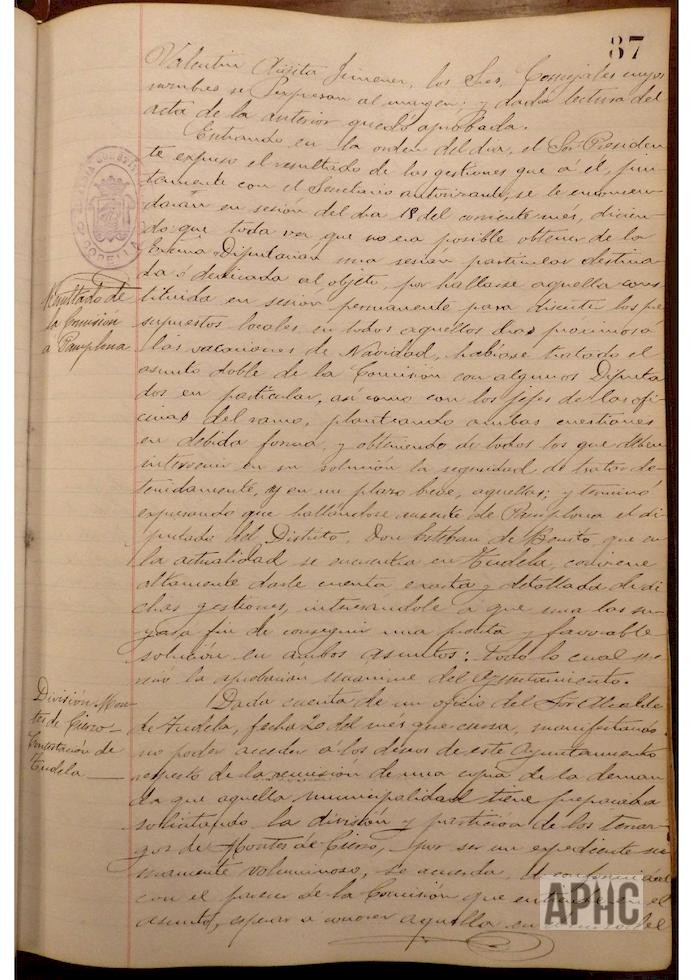 87
Valentín Jimenez, los Sres. Concejales cuyos
nombres se expresan al margen; y dada lectura del
acta de la anterior quedó aprobada.
Entrando en la orden del dia, el Sr. Presiden
te expuso el resultado de las gestiones que á él, jun-
tamente con el Secretario autorizante, se le encomen-
daran en sesión del dia 18 del corriente mes, dicien-
do que toda vez que no era posible obtener de la
Excma Diputacion una sesion particular destina-
da ó dedicada al objeto, por hallarse aquella cons
tituida en sesion permanente para discutir los pre
supuestos locales en todos aquellos dias proximos a
las vacaciones de Navidad, habíase tratado el
asunto doble de la Comisión con algunos Diputa
dos en particular, así como con los jefes de las ofi
cinas del ramo, planteando ambas cuestiones
en debida forma, y obteniendo de todos los que deben
intervenir en su solución la seguridad de tratar de-
tenidamente, y en un plazo breve, aquellas; y terminó
expresando que hallándose ausente de Pamplona el di-
putado del Distrito, Don Esteban de Benito, que en
la actualidad se encuentra en Tudela, conviene
altamente darle cuenta exacta y detallada de di
chas gestiones, interesandole á que una las su-
yas a fin de conseguir una pronta y favorable
solución en ambos asuntos: todo lo cual me-
reció la aprobacion unanime del Ayuntamiento.
Dada cuenta de un oficio del Sor Alcalde
de Tudela, fecha 20 del mes que cursa, manifestando
no poder acceder a los deseos de este Ayuntamiento
respecto de la remisión de una copia de la deman
da que aquella municipalidad tiene preparada
solicitando la division y partición de los
de Montes de Cierzo, por ser un expediente su
mamente voluminoso, se acuerda, de conformidad
con el parecer de la Comisión que entiende en el
asunto, esperar a conocer aquella en
Resultado de
la Comisión
a Pamplona
División Mon-
tes de Cierzo-
Contestación de
Tudela
CORELLA
APHC